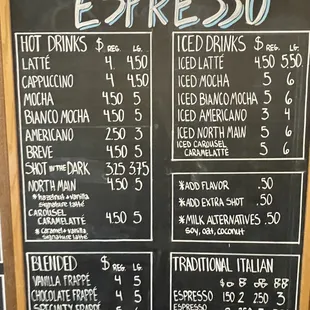 ESPRESSO
HOT DRINKS $ REG. LG.
LATTÉ 4 4.50
CAPPUCCINO 4 4.50
MOCHA 4.50 5
BIANCO MOCHA 4.50 5
AMERICANO 2.50 3
BREVE 4.50 5
SHOT IN THE DARK 3.25 3.75
NORTH MAIN 4.50 5
* hazelnut + vanilla
signature latté
CAROUSEL
CARAMELATTE 4.50 5
* caramel + vanilla
SIGNATURE LATTE
BLENDED $ REG. LG.
VANILLA FRAPPÉ 4 5
CHOCOLATE FRAPPÉ 4 5
SPECIALTY FRAPPÉ
ICED DRINKS $ REG. LG.
ICED LATTE 4.50 5.50
ICED MOCHA 5 6
ICED BIANCO MOCHA 5 6
ICED AMERICANO 3 4
ICED NORTH MAIN 5 6
ICED CAROUSEL
CARAMELATTE 5 6
*ADD FLAVOR .50
*ADD EXTRA SHOT .50
*MILK ALTERNATIVES .50
soy, oat, coconut
TRADITIONAL ITALIAN
$
ESPRESSO 1.50 2 2.50 3